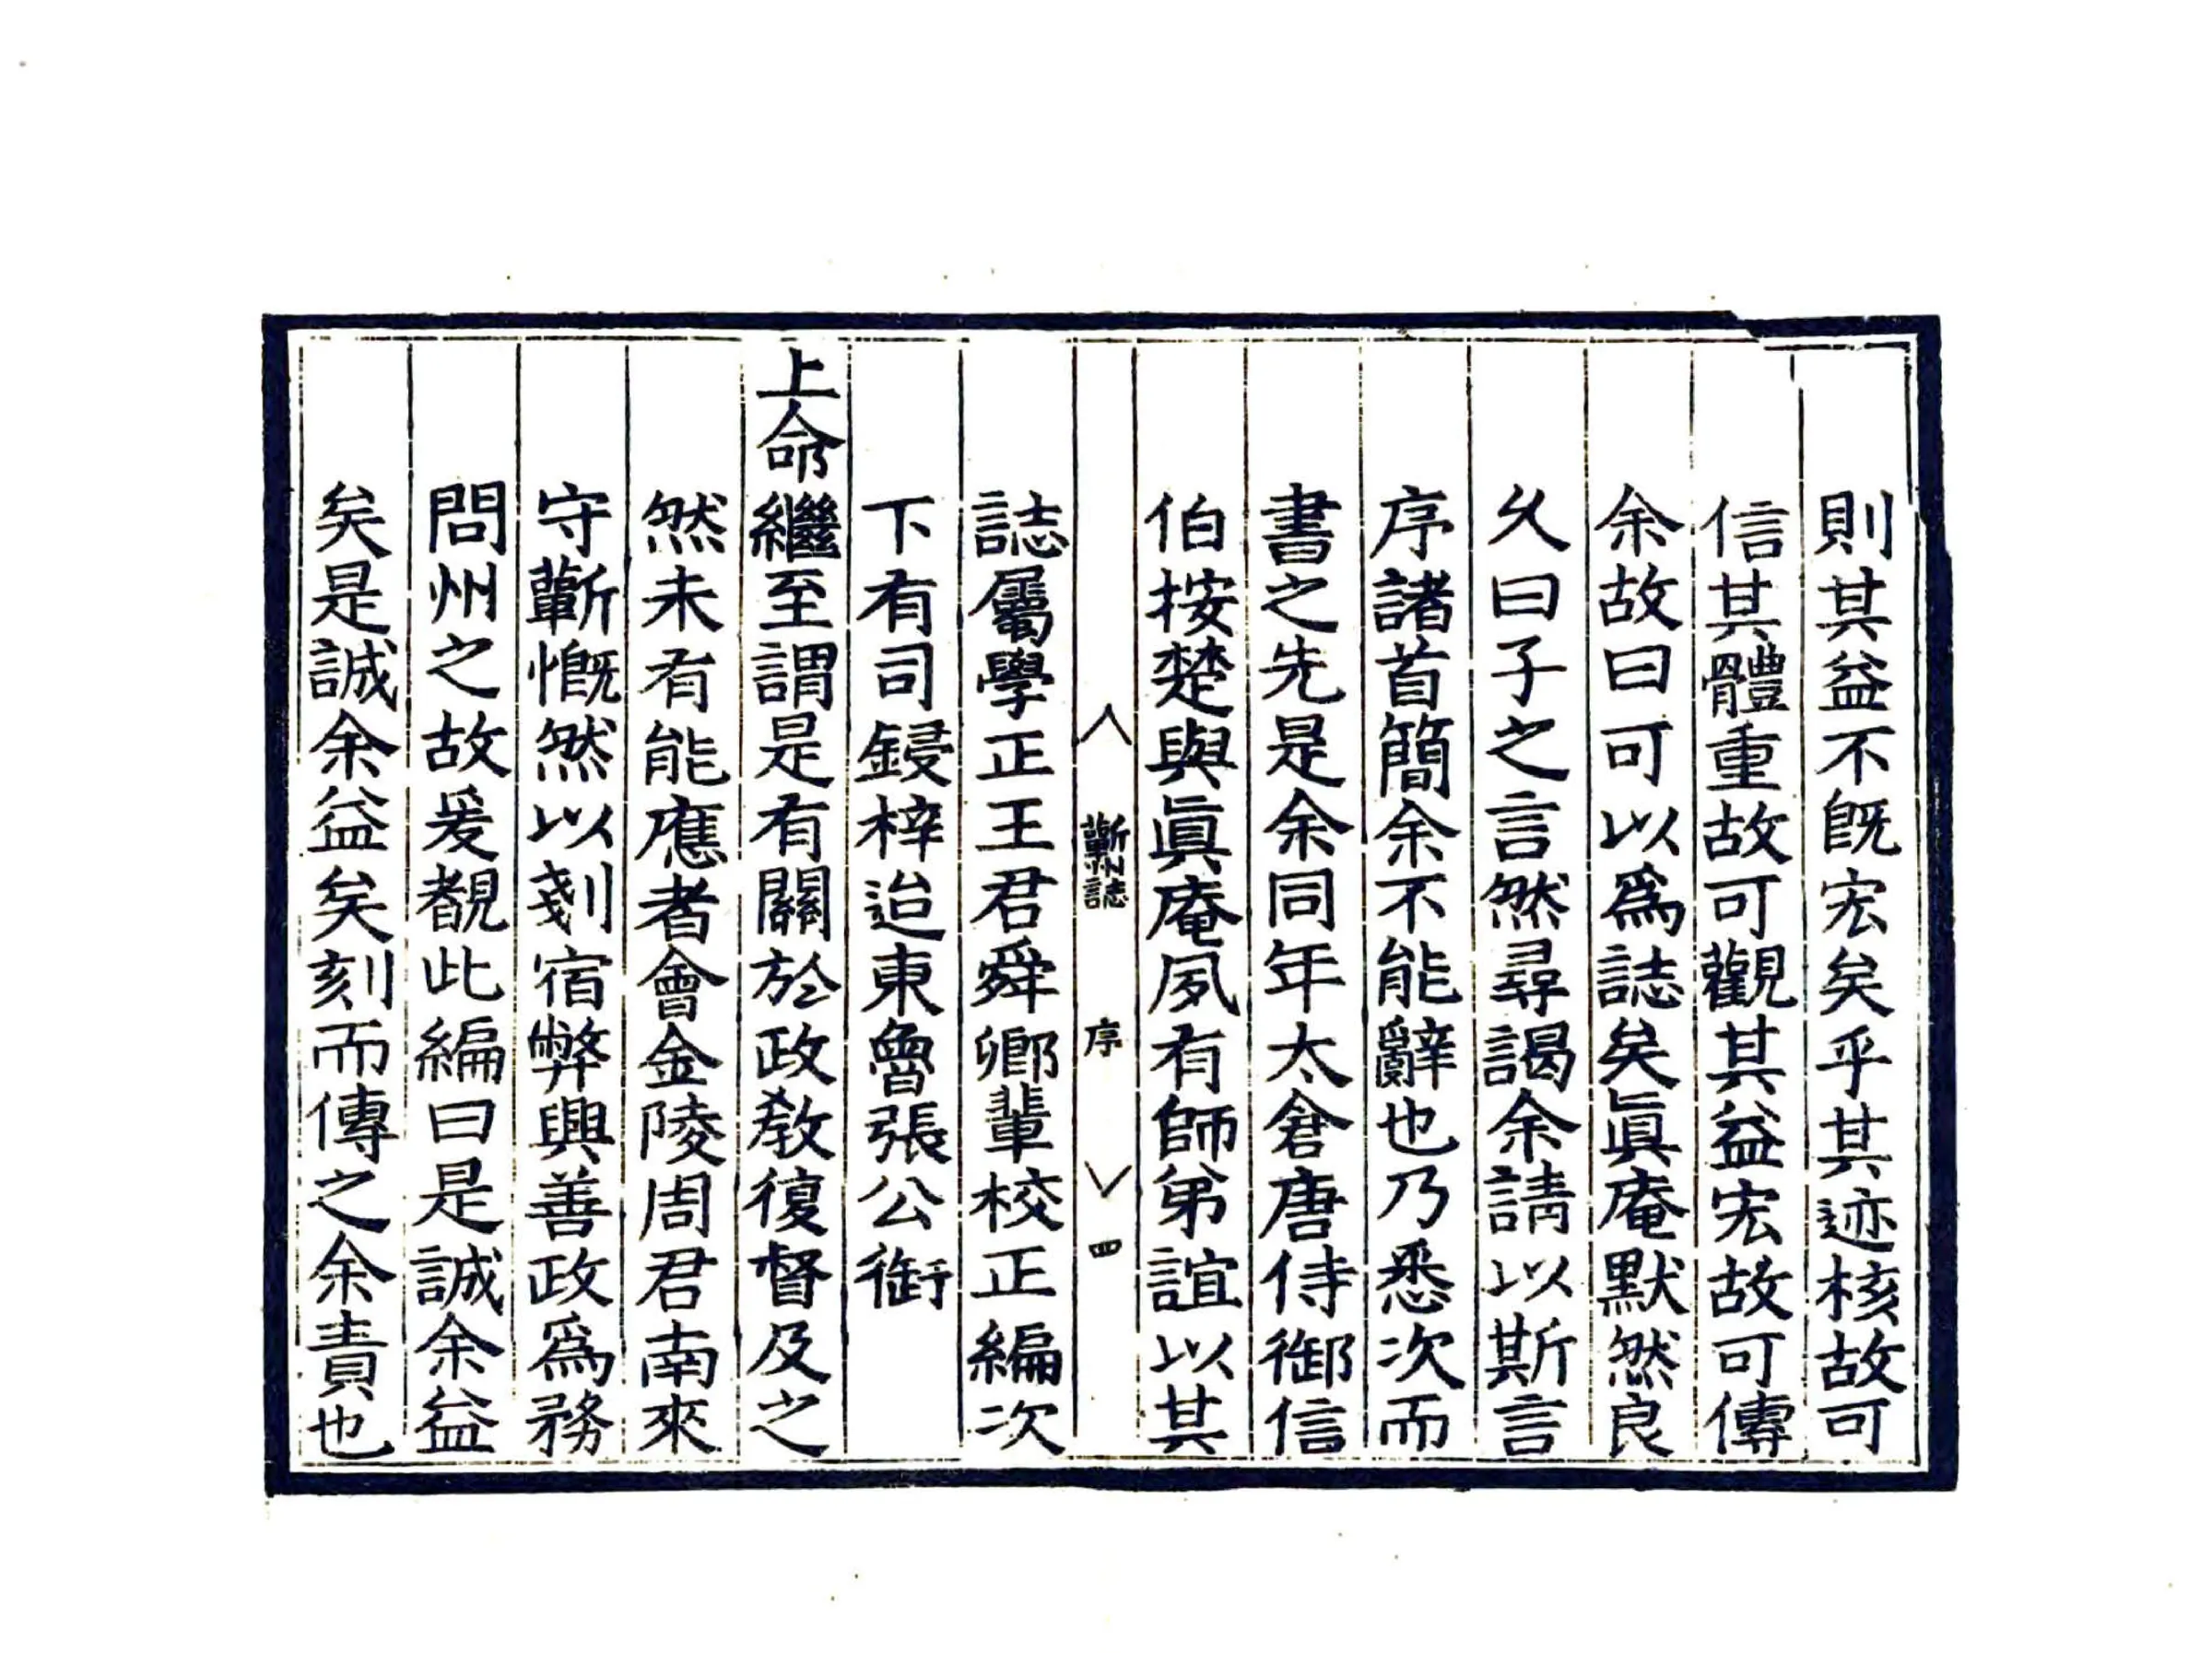 則其益不旣宏矣乎其迹核故可
信其體重故可觀其益宏故可傳
余故曰可以爲誌矣眞庵默然良
乆曰子之言然尋謁余請以斯言
序諸首簡余不能辭也乃悉次而
書之先是余同年太倉唐侍御信
伯按楚與眞庵夙有師弟誼以其
蘄州誌 序 四
誌屬學正王君舜卿輩校正編次
下有司鋟梓迨東魯張公銜
上命繼至謂是有關於政教復督及之
然未有能應者會金陵周君南來
守蘄慨然以剗宿弊興善政爲務
問州之故爰覩此編曰是誠余益
矣是誠余益矣刻而傳之余責也